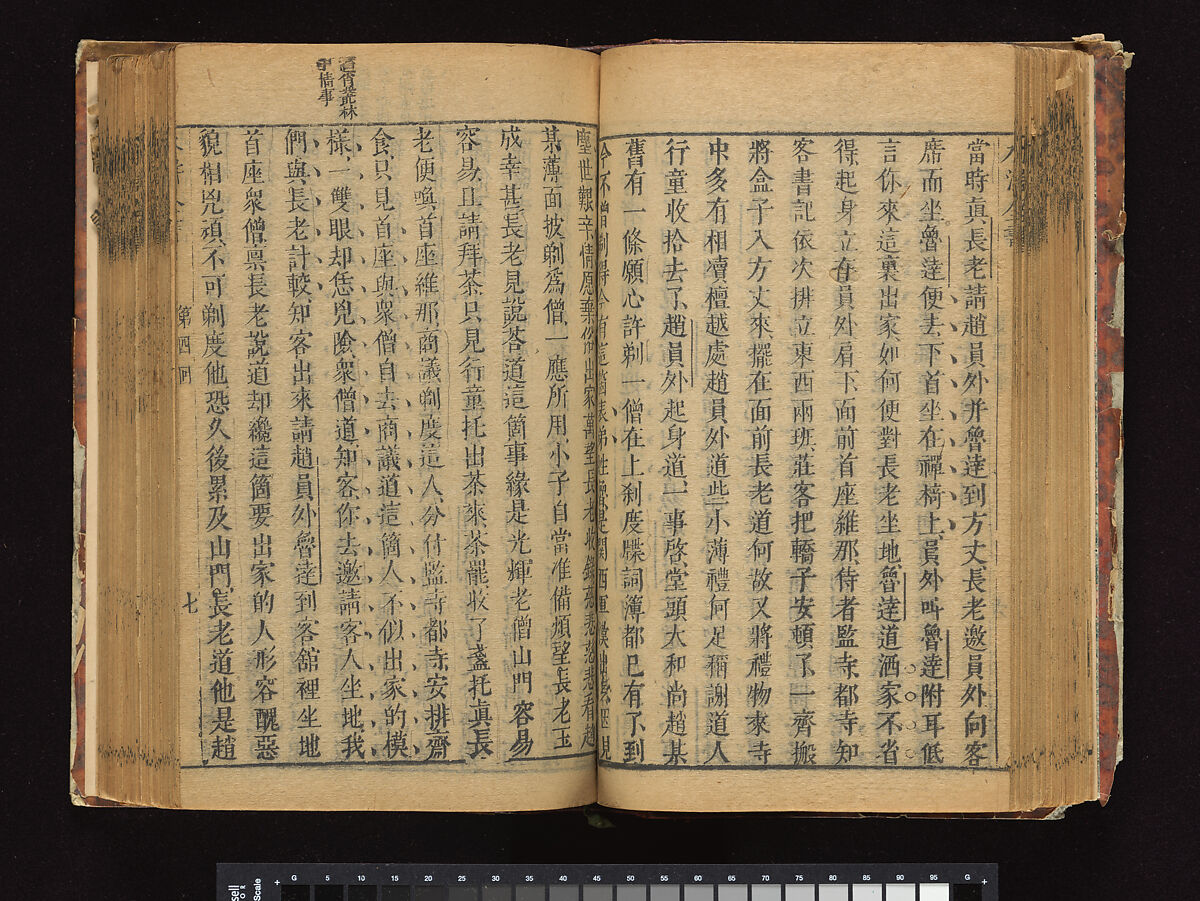 當時真長老請趙員外并魯達到方丈長老邀員外向客
席而坐魯達便去下首坐在禪椅上員外叫魯達附耳低
言你來這裏出家如何便對長老坐地魯達道洒家不省
得起身立在員外肩下面前首座維那侍者監寺都寺知
客書記依次排立東西兩班莊客把轎子安頓了一齊搬
將盒子入方丈來擺在面前長老道何故又將禮物來寺
中多有相瀆檀越處趙員外道些小薄禮何足稱謝道人
行童收拾去了趙員外起身道一事啓堂頭大和尚趙某
舊有一條願心許剃一僧在上刹度牒詞簿都已有了到
塵世艱辛情愿棄俗出家萬望長老收錄慈悲慈悲看趙
某薄面披剃爲僧一應所用小子自當准備煩望長老玉
成幸甚長老見說荅道這箇事緣是光輝老僧山門容易
容易且請拜茶只見行童托出茶來茶罷收了盞托真長
老便喚首座維那商議剃度這人分付監寺都寺安排齋
食只見首座與衆僧自去商議道這箇人不似出家的模
樣一雙眼却恁兇險衆僧道知客你去邀請客人坐地我
們與長老計較知客出來請趙員外魯達到客館裡坐地
首座衆僧禀長老說道却纔這箇要出家的人形容醜惡
貌相兇頑不可剃度他恐久後累及山門長老道他是趙
叢林
中情事
第四回
七